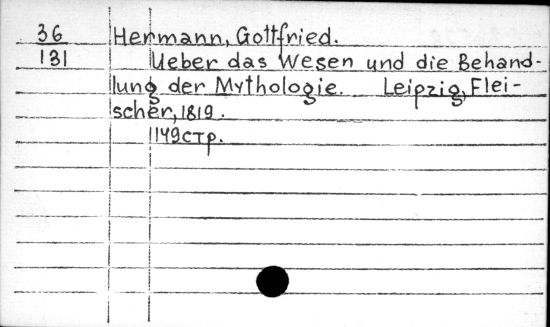 36 Hermann, Gottfried.
131 Ueber das Wesen und die Behand-
lung der Mythologie. Leipzig, Flei-
scher, 1819.
149стр.